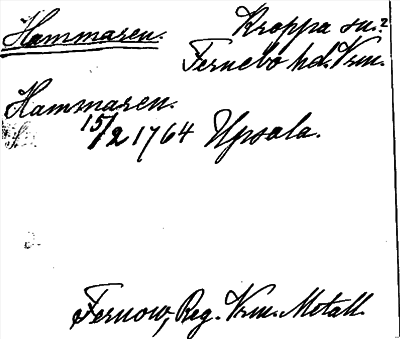 Hammaren. Kroppa sn.?
Fernebo hd. Vrm.
Hammaren.
15/2 1764 Upsala.
Fernow, Reg. Vrm. Metall.